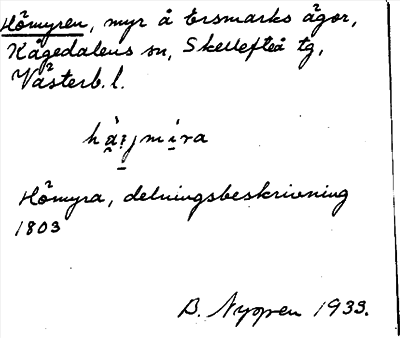 Hömyren, myr å Ersmarks ägor,
Kågedalens sn, Skellefteå tg,
Västerb. l.
Hömyra, delningsbeskrivning
1803
B. Nygren 1933.